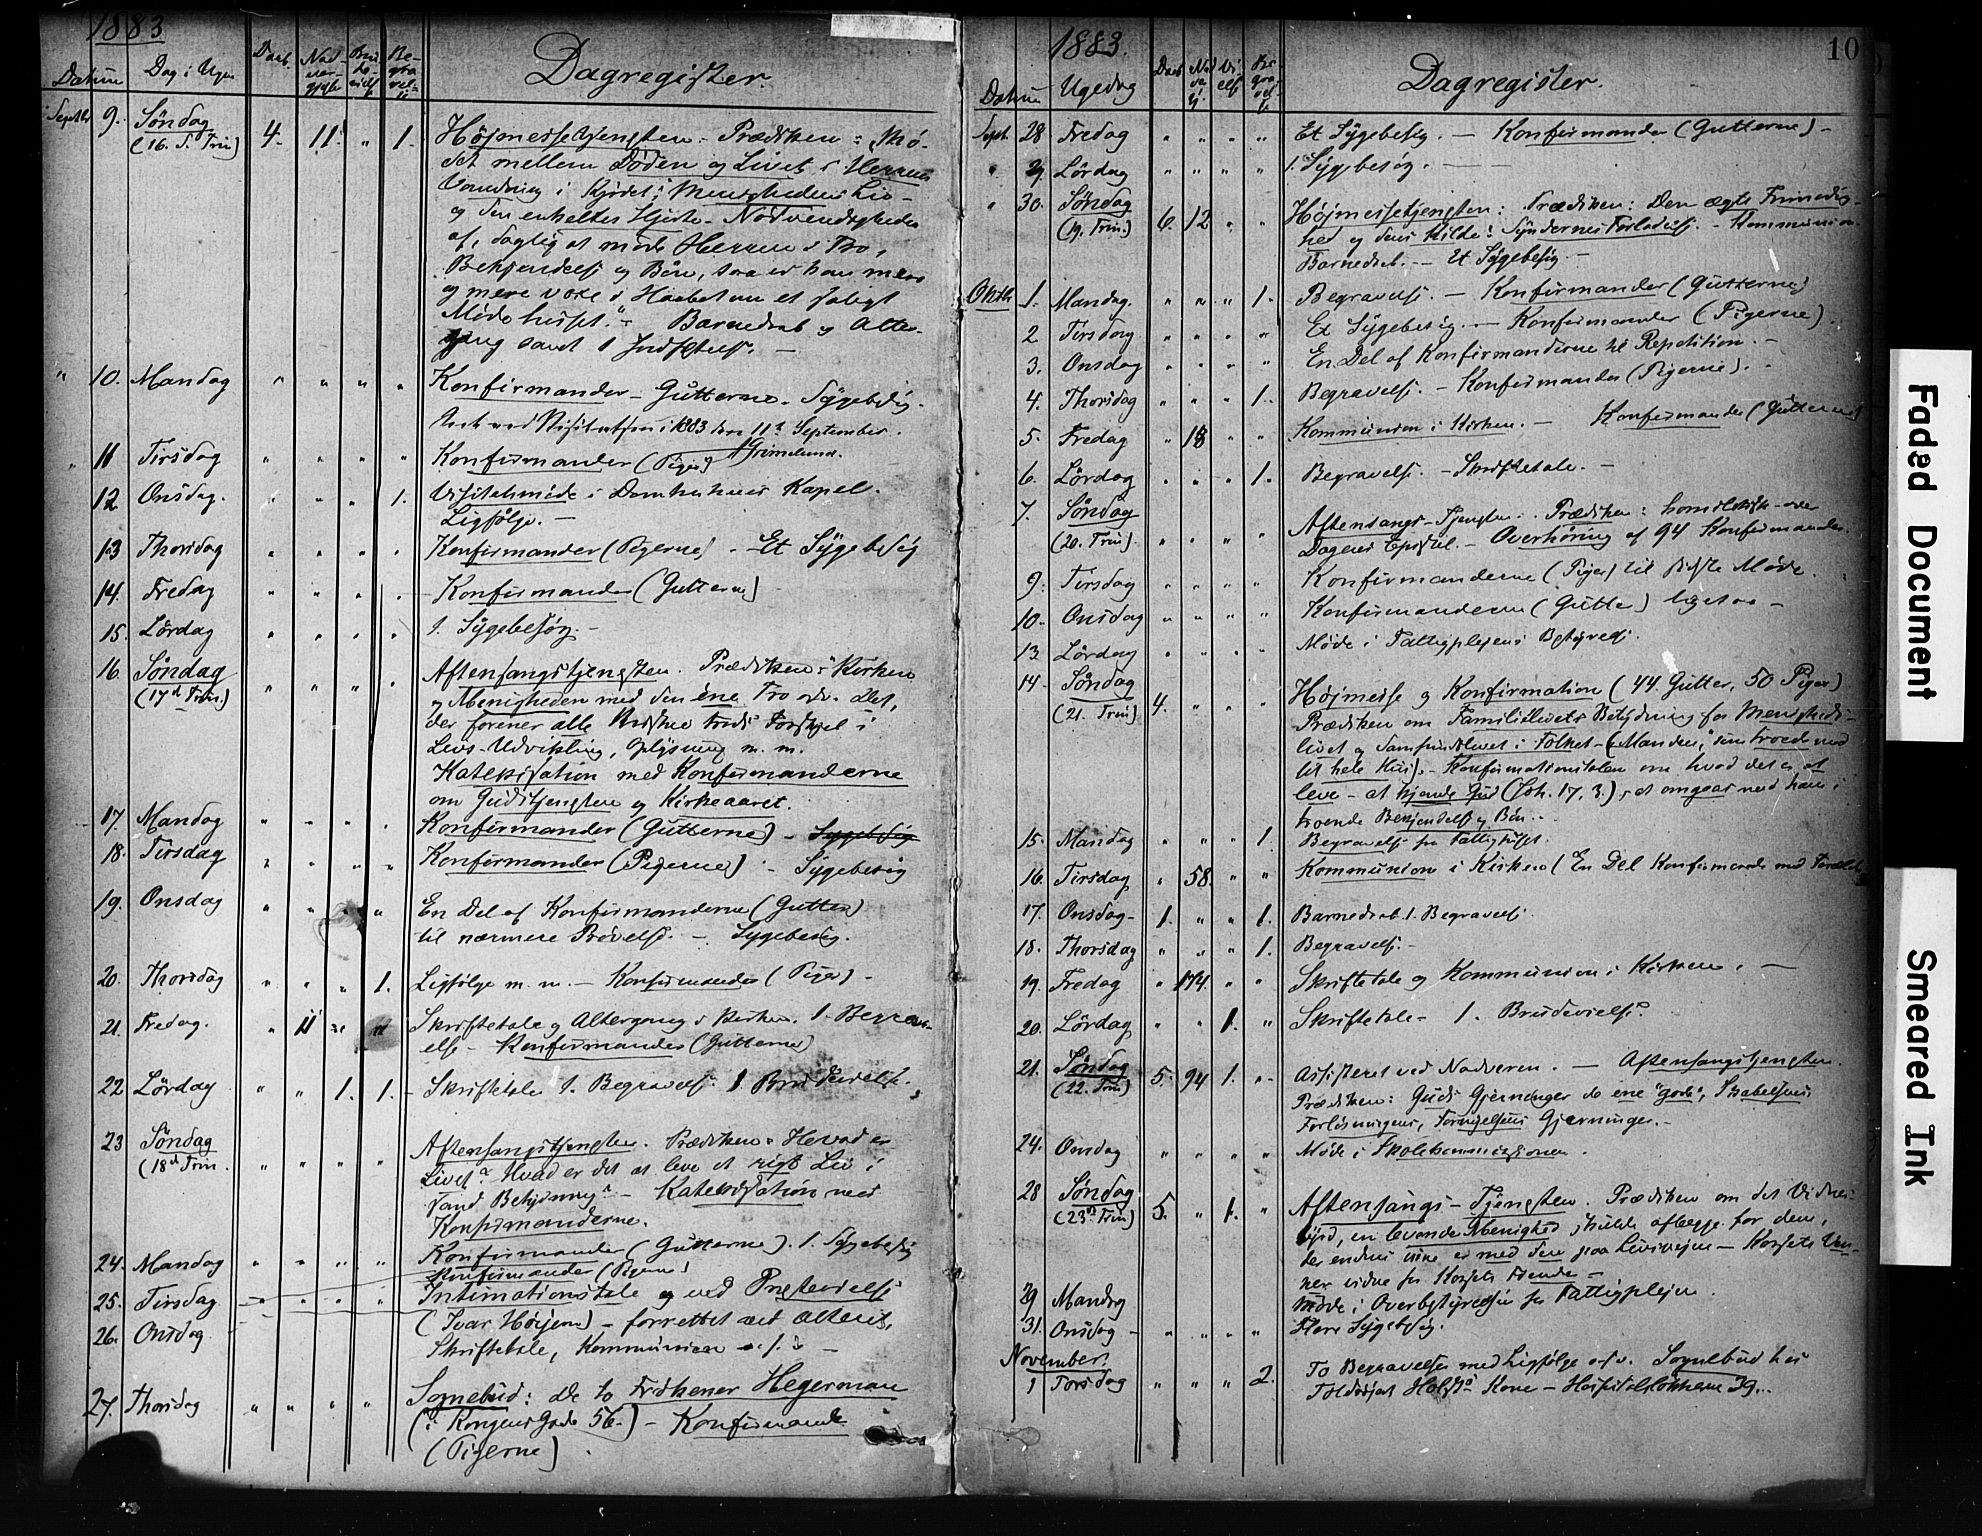 1883
Datum Dag i Ugen Daab. Nad- ver- gjæste Bru- de- vielse Be- gra- vel- se Dagregister.
Septbr 9. Søndag 4. 11. " 1. Højmessetjenesten. Prædiken: Mø-
(16. S. Trin) det mellem Døden og Livet i Herrens
Vandring i Kjødet, i Menighedens Liv
og den enkeltes Hjerte. Nødvendigheden
af, daglig at møde Herren i Tro,
Bekjendelse og Bøn, saa at han mere
og mere voxe i Haabet om et saligt
Møde hisset." Barnedaab og Alter-
gang samt 1 Indskrelse. —
" 10. Mandag " " " " Konfirmander – Gutterne. Sygebesøg.
Seet ved Visitatsen i 1883 den 11te September.
Grimelund.
" 11 Tirsdag " " " " Konfirmander (Piger)
12 Onsdag. " " " 1. Visitatsmøde i Domkirkens Kapel.
Ligfølge. —
13 Thorsdag " " " " Konfirmander (Pigerne) – Et Sygebesøg
14. Fredag " " " " Konfirmander (Gutterne)
15. Lördag " " " " 1. Sygebesøg. –
16. Søndag " " " " Aftensangstjenesten. Prædiken: Kirken
(17d Trin.) og Menigheden med den ene Tro Det,
der forener alle trods Forskjel i
Livs-Udvikling, Oplysning m. m.
Katekisation med Konfirmanderne
om Gudstjenesten og Kirkeaaret.
17. Mandag " " " " Konfirmander (Gutterne) – Sygebesøg
18. Tirsdag " " " " Konfirmander (Pigerne) – Sygebesøg
19. Onsdag " " " " En Del af Konfirmanderne (Gutter)
til nærmere Prøvelse. – Sygebesøg.
20. Thorsdag " " " 1. Ligfølge m. m. – Konfirmander (Piger) –
21. Fredag. " 11 " 1 Skriftetale og Altergang i Kirken. 1. Begrav-
else – Konfirmander (Gutterne)
22 Lördag " " 1. 1. Skriftetale 1. Begravelse. 1 Brudevielse.
23 Søndag " " " " Aftensangstjenesten. Prædiken: Hvad er
(18d Trin. Livet? Hvad er det at leve et rigt Liv i
sand Betydning? – Katekisation med
Konfirmanderne.
24. Mandag " " " " Konfirmander (Gutterne). 1. Sygebesøg
Konfirmander (Pigerne)
25. Tirsdag " " " " Intimationstale og ved Præstevielse
26. Onsdag (Ivar Høijem) – forrettet ved Alteret,
Skriftetale, Kommunion o. s. v –
27. Thorsdag " " " " Sognebud: de to Frøkener Hegerman
(i Kongensgade 56.) – Konfirmand.
(Pigerne).
1883. 10
Datum Ugedag Daab Nad ve rj. Vi else Be gra- vel- se Dagregister.
Sept. 28 Fredag " " " " Et Sygebesøg. – Konfirmander (Gutterne) –
" 29 Lördag " " " " 1. Sygebesøg. –
" 30. Søndag 6. 12 " " Højmessetjenesten: Prædiken: Den ægte Frimodig-
(19. Trin.) hed og dens Kilde: Syndernes Forladelse. – Kommunion.
Barnedaab. – Et Sygebesøg. –
Oktbr 1. Mandag. " " " 1. Begravelse. – Konfirmander (Gutterne)
2 Tirsdag " " " " Et Sygebesøg. – Konfirmander (Pigerne).
3. Onsdag " " " " En Del af Konfirmanderne til Repetition. –
4. Thorsdag " " " 1. Begravelse. – Konfirmander (Pigerne). –
5. Fredag " 18 " " Kommunion i Kirken. – Konfirmander (Gutterne)
6. Lördag " " " 1. Begravelse. – Skriftetale. –
7. Søndag " " " " Aftensangs-Tjenesten. Prædiken: homiletisk over
(20. Trin). Dagens Epistel. – Overhøring af 94 Konfirmander.
9. Tirsdag " " " " Konfirmanderne (Piger) til sidste Møde.
10. Onsdag " " " " Konfirmanderne (Gutter) ligesaa –
13 Lördag " " " " Møde i Fattigplejens Bestyrelse.
14. Søndag 4. " " " Højmesse og Konfirmation (44 Gutter, 50 Piger)
(21. Trin) Prædiken om Familielivets Betydning for Menigheds-
livet og Samfundslivet i Folket – (Manden, som troede med
sit hele Hus). – Konfirmationstalen om hvad det er at
leve – at kjende Gud (Joh. 17, 3.), at omgaaes med ham i
troende Bekjendelse og Bøn. –
15. Mandag " " " 1. Begravelse fra Fattighuset.
16. Tirsdag " 58. " " Kommunion i Kirken (En Del Konfirmande med Forældre
17. Onsdag – 1. " " 1. Barnedaab. 1. Begravelse.
18. Thorsdag " " " 1. Begravelse. –
19. Fredag " 174. " " Skriftetale og Kommunion i Kirken. –
20. Lördag " " 1. " Skriftetale – 1. Brudevielse.
21. Søndag 5. 94 1. " Assisteret ved Nadveren. – Aftensangstjenesten.
(22. Trin) Prædiken: Guds Gjerninger de ene "gode", Skabelsens,
Forløsningens, Fornyelsens Gjerninger. –
24. Onsdag " " " " Møde i Skolekommissionen.
28 Søndag 5. " 1. " Aftensangs-Tjenesten. Prædiken om det Vidnes-
(23de Trin) byrd, en levende Menighed skulde aflægge for dem,
der endnu ikke er med den paa Livsvejen – Korsets Ven-
ner vidne for Korsets Fiende –
29 Mandag Møde i Overbestyrelsen for Fattigplejen.
31. Onsdag – " " " " Flere Sygebesøg.
November.
1 Torsdag " " " 2. To Begravelser med Ligfølge o.s.v. Sognebud hos
Toldbetjent Holst's Kone – Hospitalsløkken 39.
Faded Document
Smeared Ink